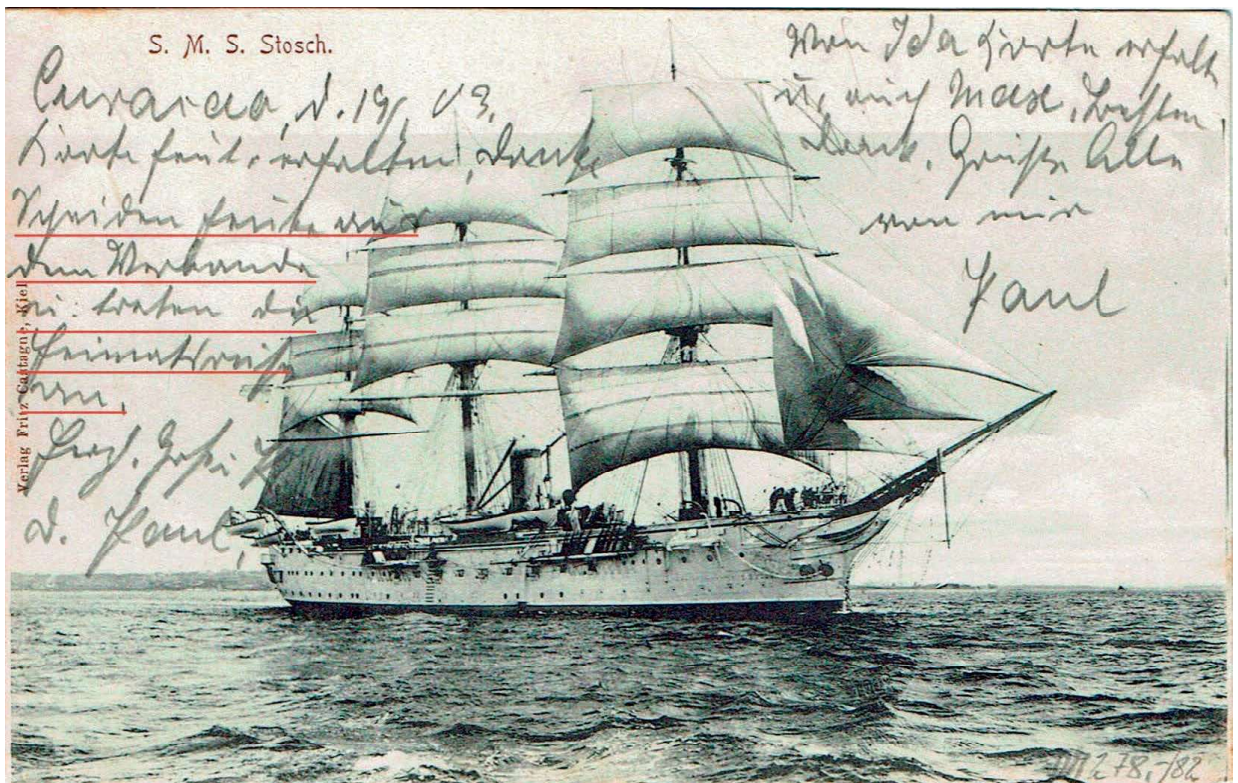 S. M. S. Stosch.
Curacao, d. 19/. 03.
Karte heut. erhalten, Danke
Scheiden heute aus
dem Verbande
u. treten die
Heimatsreise
an.
Herzl.
D. Paul.
Von Ida Karte erhalt.
u. auch Max, Besten
Dank, Grüße Alle
von mir
Paul
Verlag Fritz Castagne, Kiel